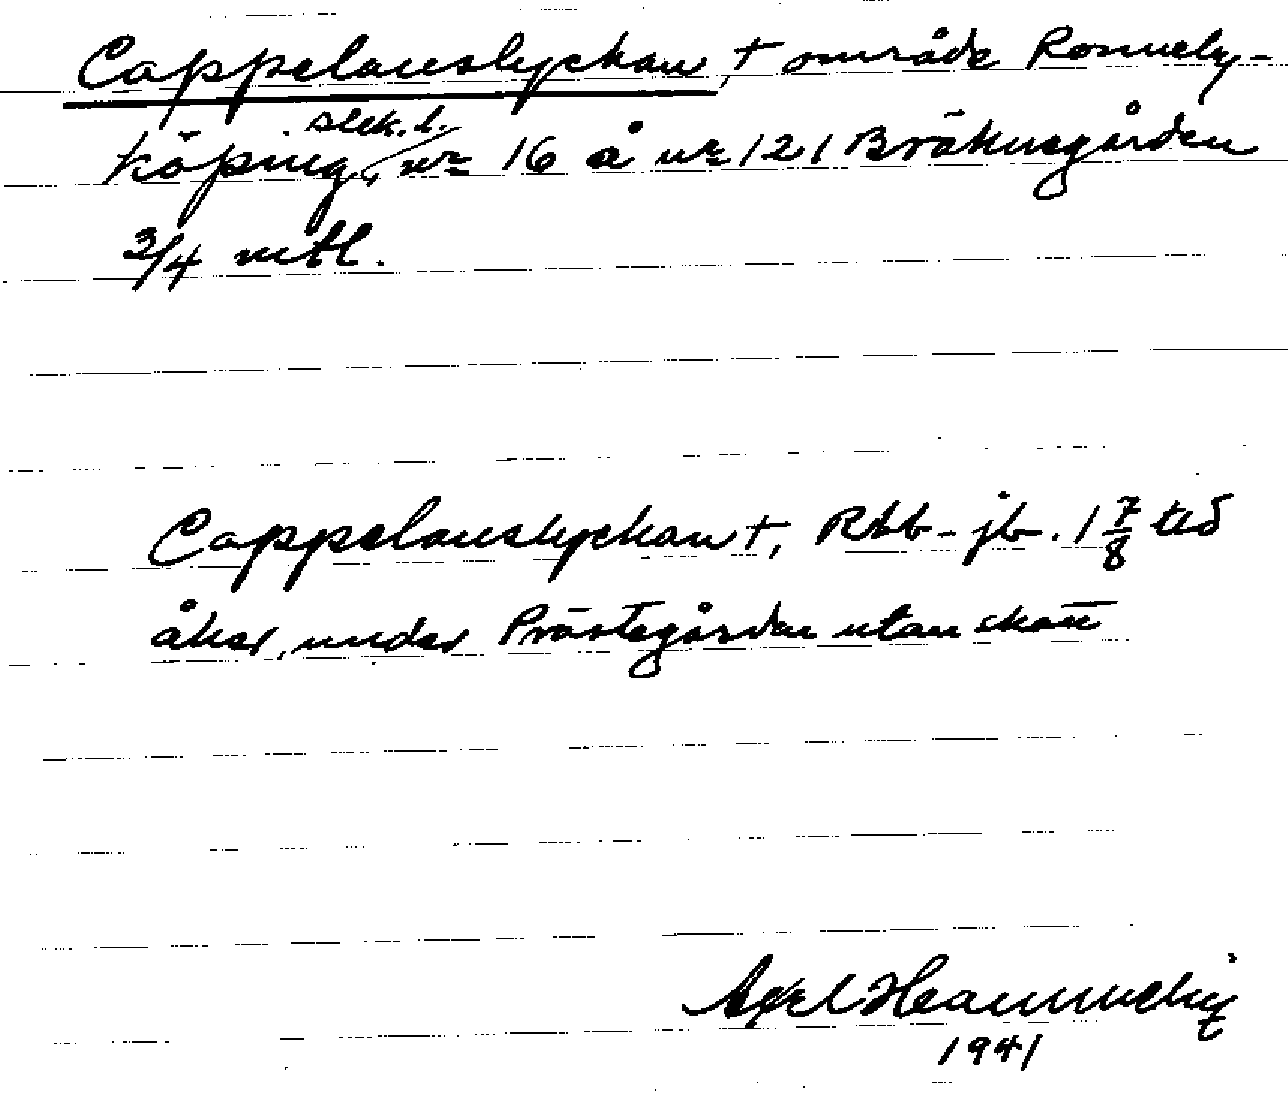 Cappelanslyckan, † område Ronneby-
köping, slek. l. nr 16 å nr 121 Bräknegården
3/4 mtl.
Cappelanslyckan †, Rbb-jb. 1 7/8 tld
åker, under Prästegården utan skatt
Axel
1941